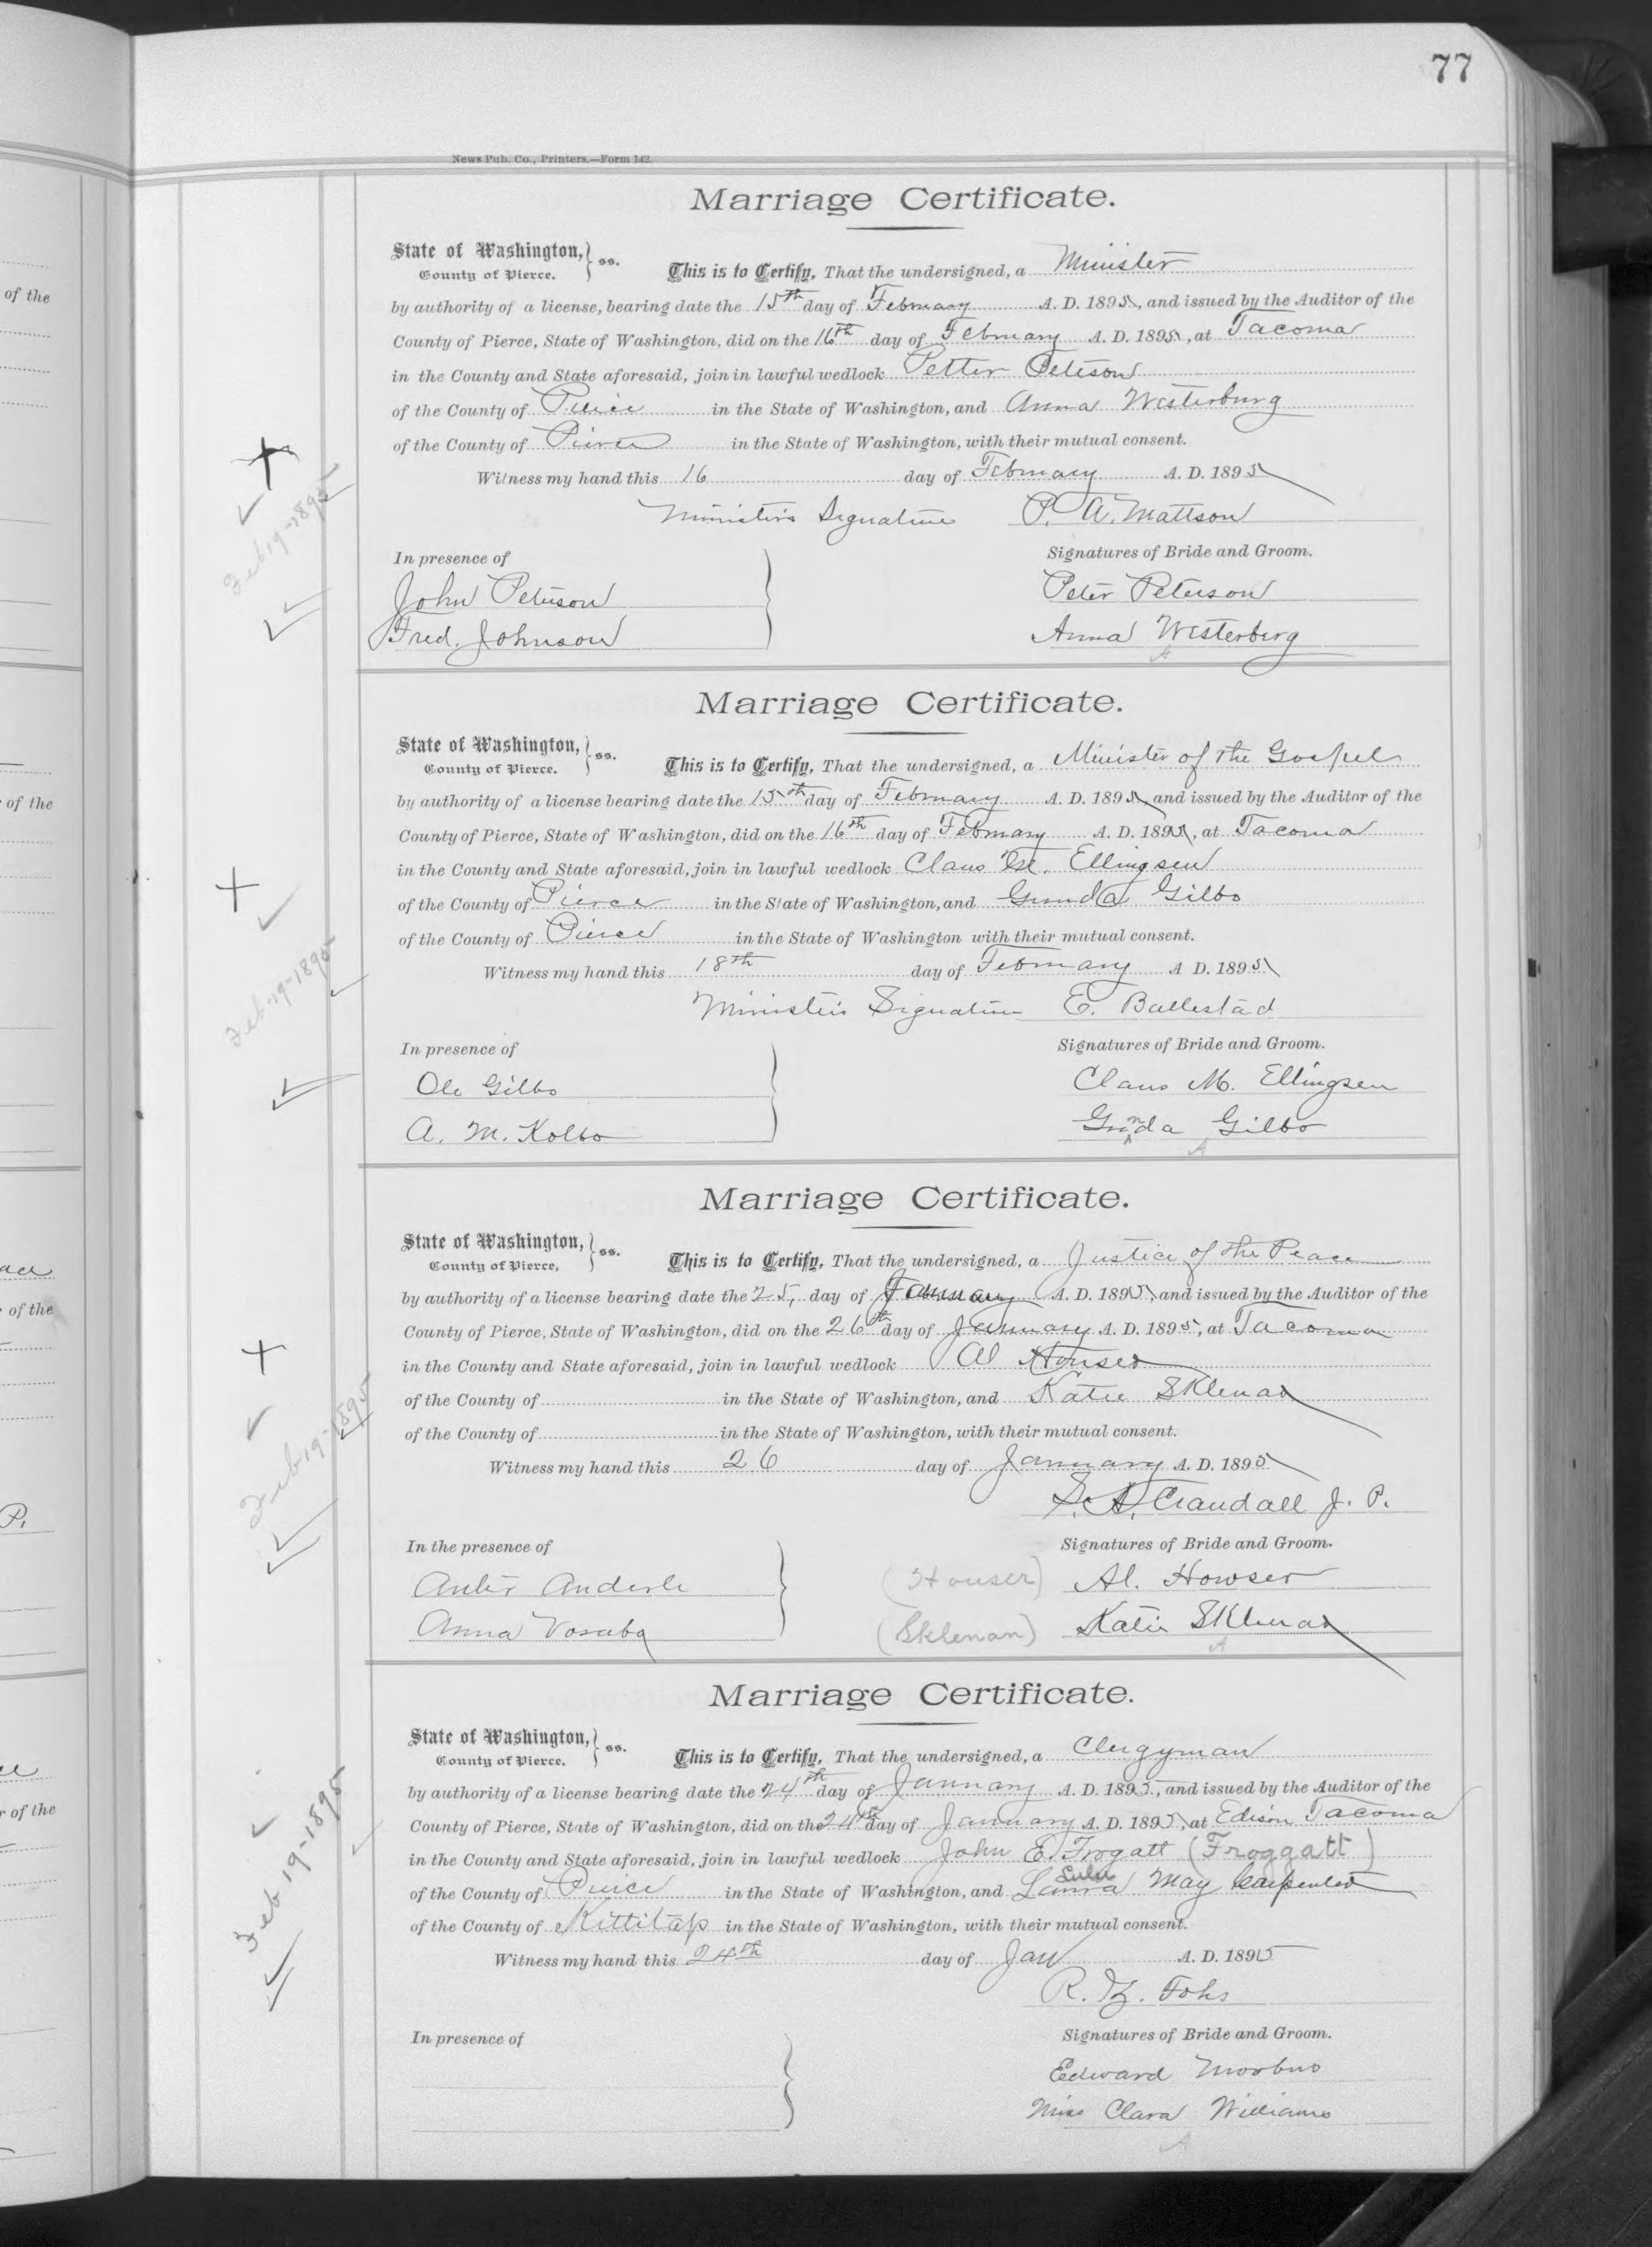 77
News Pub. Co., Printers.—Form 142.
Marriage Certificate.
State of Washington, } ss.
County of Pierce.
This is to Certify, That the undersigned, a Minister
by authority of a license, bearing date the 15th day of February A. D. 1895, and issued by the Auditor of the
County of Pierce, State of Washington, did on the 16th day of February A. D. 1895, at Tacoma
in the County and State aforesaid, join in lawful wedlock Petter Peterson
of the County of Pierce in the State of Washington, and Anna Westerburg
of the County of Pierce in the State of Washington, with their mutual consent.
Witness my hand this 16 day of February A. D. 1895
Minister's Signature P. A. Mattson
In presence of
Signatures of Bride and Groom.
John Peterson
Peter Peterson
Fred. Johnson
Anna Westerberg
Feb-19-1895
Marriage Certificate.
State of Washington, } ss.
County of Pierce.
This is to Certify, That the undersigned, a Minister of the Gospel
by authority of a license bearing date the 15th day of February A. D. 1895, and issued by the Auditor of the
County of Pierce, State of Washington, did on the 16th day of February A. D. 1895, at Tacoma
in the County and State aforesaid, join in lawful wedlock Claus M. Ellingsen
of the County of Pierce in the State of Washington, and Gunda Gilbo
of the County of Pierce in the State of Washington with their mutual consent.
Witness my hand this 18th day of February A D. 1895
Minister's Signature E. Ballestad
In presence of
Signatures of Bride and Groom.
Ole Gilbo
Claus M. Ellingsen
A. M. Kolbo
Gunda Gilbo
Feb-19-1895
Marriage Certificate.
State of Washington, } ss.
County of Pierce,
This is to Certify, That the undersigned, a Justice of the Peace
by authority of a license bearing date the 25, day of January A. D. 1895, and issued by the Auditor of the
County of Pierce, State of Washington, did on the 26th day of January A. D. 1895, at Tacoma
in the County and State aforesaid, join in lawful wedlock Al Houser
of the County of in the State of Washington, and Katie Sklenar
of the County of in the State of Washington, with their mutual consent.
Witness my hand this 26 day of January A. D. 1895
S. A. Crandall J. P.
In the presence of
Signatures of Bride and Groom.
Anderle
(Houser) Al. Howser
Anna
(Sklenan) Katie Sklenar
Feb-19-1895
Marriage Certificate.
State of Washington, } ss.
County of Pierce.
This is to Certify, That the undersigned, a Clergyman
by authority of a license bearing date the 24th day of January A. D. 1895, and issued by the Auditor of the
County of Pierce, State of Washington, did on the 24th day of January A. D. 1895, at Edison Tacoma
in the County and State aforesaid, join in lawful wedlock John E. Frogatt (Froggatt)
of the County of Pierce in the State of Washington, and Laura Lulu May Carpenter
of the County of Kittitap in the State of Washington, with their mutual consent.
Witness my hand this 24th day of Jan A. D. 1895
R. Z. Fohs
In presence of
Signatures of Bride and Groom.
Edward
Miss Clara Williams
Feb 19-1895
of the
of the
of the
P.
of the